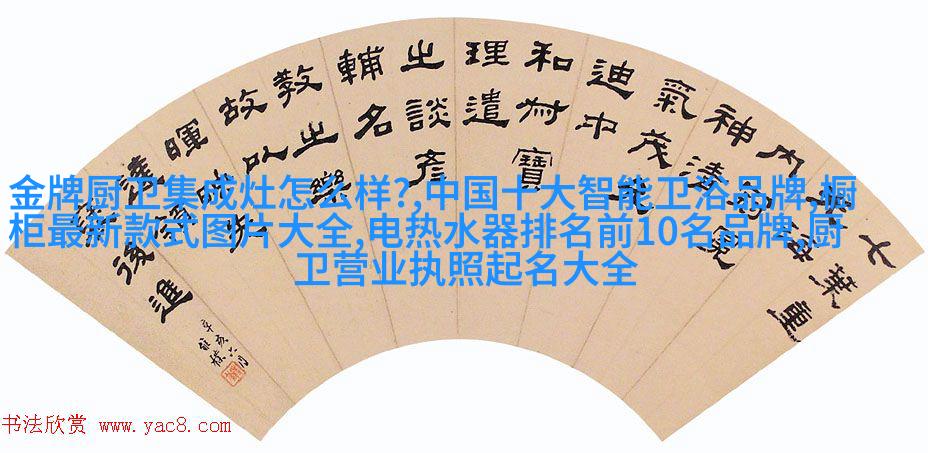 七葉重
内
神清冕
氣茂
迪中
和寶
理遣
之談彦
輔名
教之樂
故以
暉
後進
辛亥六月
金牌厨卫集成灶怎么样?,中国十大智能卫浴品牌,橱
柜最新款式图片大全,电热水器排名前10名品牌,厨
卫营业执照起名大全
书法欣赏 www.yac8.com